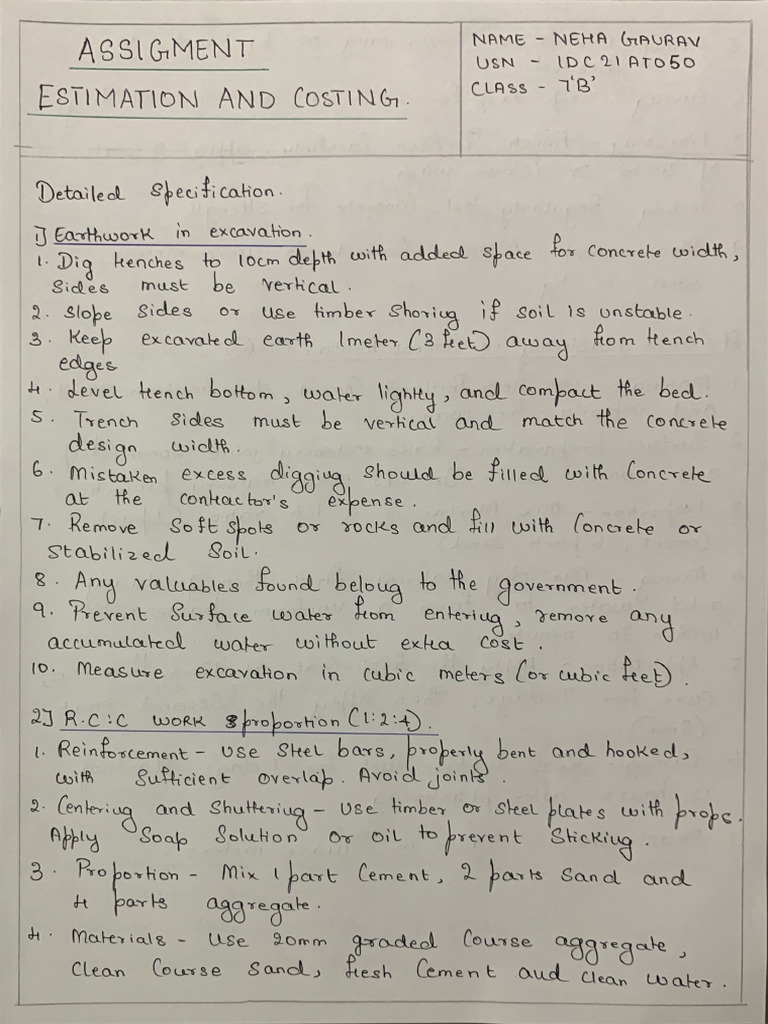 ASSIGMENT
ESTIMATION AND COSTING.
NAME - NEHA GAURAV
USN - 1DC21AT050
CLASS - 7'B'
Detailed Specification.
1] Earthwork in excavation.
1. Dig trenches to 10cm depth with added space for concrete width,
sides must be vertical.
2. Slope sides or use timber shoring if soil is unstable.
3. Keep excavated earth 1meter (3 feet) away from trench
edges
4. Level trench bottom, water lightly, and compact the bed.
5. Trench sides must be vertical and match the concrete
design width.
6. Mistaken excess digging should be filled with Concrete
at the contractor's expense.
7. Remove Soft spots or rocks and fill with Concrete or
Stabilized Soil.
8. Any valuables found belong to the government.
9. Prevent Surface water from entering, remove any
accumulated water without extra cost.
10. Measure excavation in cubic meters (or cubic feet).
2] R.C.C WORK proportion (1:2:4).
1. Reinforcement - Use Steel bars, properly bent and hooked,
with Sufficient overlap. Avoid joints.
2. Centering and Shuttering - Use timber or steel plates with props.
Apply Soap Solution or oil to prevent Sticking.
3. Proportion - Mix 1 part Cement, 2 parts Sand and
4 parts aggregate.
4. Materials - Use 20mm graded Course aggregate,
Clean Course Sand, fresh Cement and clean water.